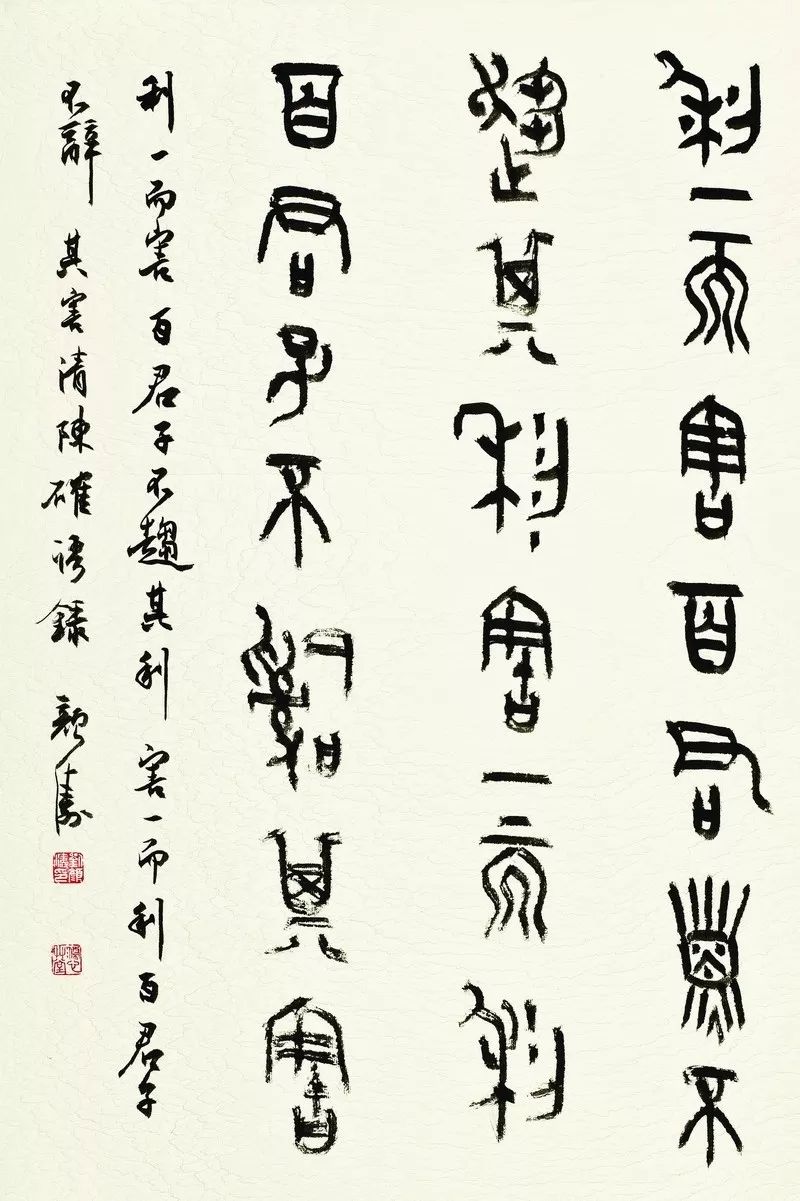 利一而害百君子不
趨其利害一而利
百君子不辭其害
利一而害百君子不趨其利害一而利百君子
不辭其害清陳確語錄 顏濤
劉顏濤印